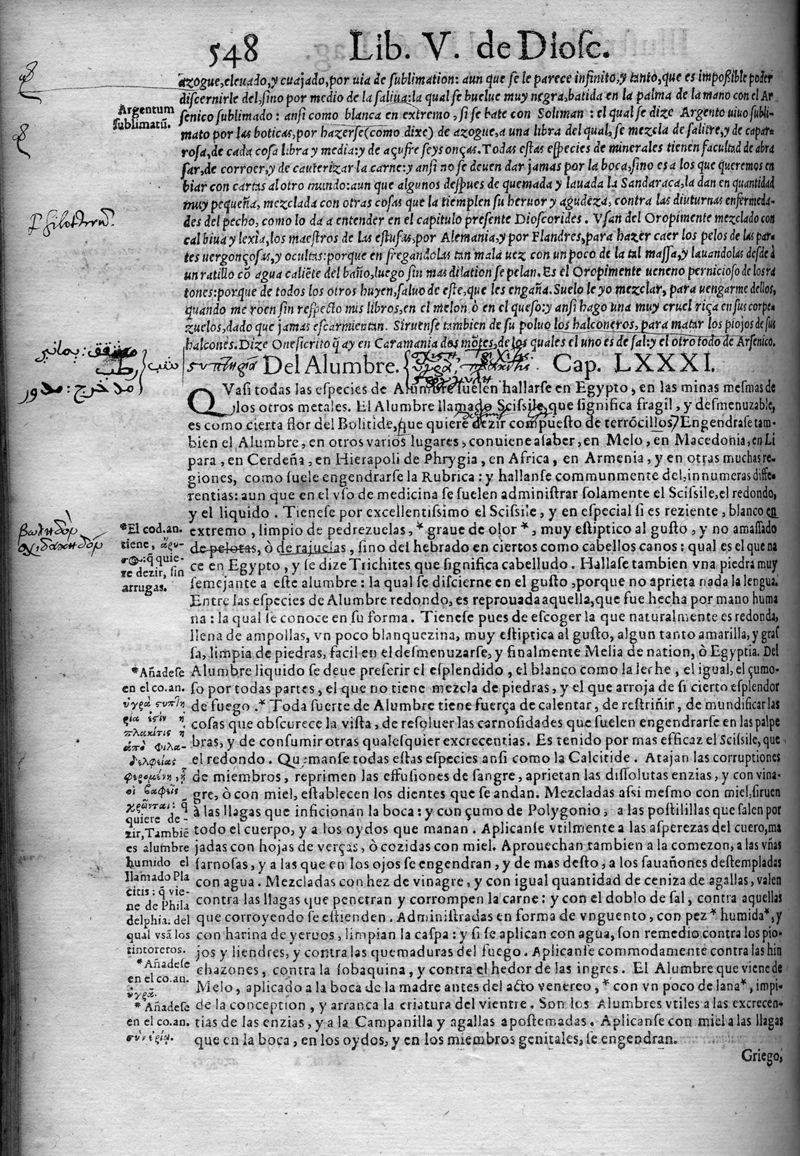 548 Lib. V. de Dioſc.
azogue, eleuado, y cuajado, por uia de ſublimation: aun que ſe le parece infinito, y tanto, que es impoßible poder
diſcernirle del, ſino por medio de la ſaliua: la qual ſe buelue muy negra, batida en la palma de la mano con el Ar
ſenico ſublimado: anſi como blanca en extremo, ſi ſe bate con Soliman: el qual ſe dize Argento uiuo ſubli-
mato por las boticas, por hazerſe (como dixe) de azogue, a una libra del qual, ſe mezcla de ſalitre, y de capar
roſa, de cada coſa libra y media: y de açufre ſeys onças. Todas eſtas eſpecies de minerales tienen facultad de abra
ſar, de corroer, y de cauterizar la carne: y anſi no ſe deuen dar jamas por la boca, ſino es a los que queremos en
biar con cartas al otro mundo: aun que algunos deſpues de quemada y lauada la Sandaraca, la dan en quantidad
muy pequeña, mezclada con otras coſas que la tiemplen ſu heruor y agudeza, contra las diuturnas enfermeda-
des del pecho, como lo da a entender en el capitulo preſente Dioſcorides. Vſan del Oropimente mezclado con
cal biua y lexia, los maeſtros de las eſtufas, por Alemania, y por Flandres, para hazer caer los pelos de las par
tes uergonçoſas, y ocultas: porque en fregandolas tan mala uez con un poco de la tal maſſa, y lauandolas deſde à
un ratillo cõ agua caliẽte del baño, luego ſin mas dilation ſe pelan. Es el Oropimente ueneno pernicioſo de los ra
tones: porque de todos los otros huyen, ſaluo de eſte, que les engaña. Suelo le yo mezclar, para uengarme dellos,
quando me roen ſin reſpecto mis libros, en el melon ò en el queſo: y anſi hago una muy cruel riça en ſus corpe-
zuelos, dado que jamas eſcarmientan. Siruenſe tambien de ſu poluo los halconeros, para matar los piojos de ſus
halcones. Dize Oneſicrito q̃ ay en Caramania dos mõtes, de los quales el uno es de ſal: y el otro todo de Arſenico.
Argentum
ſublimatũ.
Del Alumbre. Cap. LXXXI.
QVaſi todas las eſpecies de Alumbre ſuelen hallarſe en Egypto, en las minas meſmas de
los otros metales. El Alumbre llamado Sciſsile, que ſignifica fragil, y deſmenuzable,
es como cierta flor del Bolitide, que quiere dezir compueſto de terrõcillos. Engendraſe tam-
bien el Alumbre, en otros varios lugares, conuiene aſaber, en Melo, en Macedonia, en Li
para, en Cerdeña, en Hierapoli de Phrygia, en Africa, en Armenia, y en otras muchas re-
giones, como ſuele engendrarſe la Rubrica: y hallanſe communmente del, innumeras diffe-
rentias: aun que en el vſo de medicina ſe ſuelen adminiſtrar ſolamente el Sciſsile, el redondo,
y el liquido. Tieneſe por excellentiſsimo el Sciſsile, y en eſpecial ſi es reziente, blanco en
extremo, limpio de pedrezuelas, * graue de olor *, muy eſtiptico al guſto, y no amaſſado
de pelotas, ò de rajuelas, ſino del hebrado en ciertos como cabellos canos: qual es el que na
ce en Egypto, y ſe dize Trichites que ſignifica cabelludo. Hallaſe tambien vna piedra muy
ſemejante a eſte alumbre: la qual ſe diſcierne en el guſto, porque no aprieta nada la lengua.
Entre las eſpecies de Alumbre redondo, es reprouada aquella, que fue hecha por mano huma
na: la qual ſe conoce en ſu forma. Tieneſe pues de eſcoger la que naturalmente es redonda,
llena de ampollas, vn poco blanquezina, muy eſtiptica al guſto, algun tanto amarilla, y graſ
ſa, limpia de piedras, facil en el deſmenuzarſe, y finalmente Melia de nation, ò Egyptia. Del
Alumbre liquido ſe deue preferir el eſplendido, el blanco como la leche, el igual, el çumo-
ſo por todas partes, el que no tiene mezcla de piedras, y el que arroja de ſi cierto eſplendor
de fuego.* Toda ſuerte de Alumbre tiene fuerça de calentar, de reſtriñir, de mundificar las
coſas que obſcurece la viſta, de reſoluer las carnoſidades que ſuelen engendrarſe en las palpe
bras, y de conſumir otras qualeſquier excrecentias. Es tenido por mas efficaz el Sciſsile, que
el redondo. Quemanſe todas eſtas eſpecies anſi como la Calcitide. Atajan las corruptiones
de miembros, reprimen las effuſiones de ſangre, aprietan las diſſolutas enzias, y con vina-
gre, ò con miel, eſtablecen los dientes que ſe andan. Mezcladas aſsi meſmo con miel, ſiruen
à las llagas que inficionan la boca: y con çumo de Polygonio, a las poſtilillas que ſalen por
todo el cuerpo, y a los oydos que manan. Aplicanſe vtilmente a las aſperezas del cuero, ma
jadas con hojas de verças, ò cozidas con miel. Aprouechan tambien a la comezon, a las vñas
ſarnoſas, y a las que en los ojos ſe engendran, y de mas deſto, a los ſauañones deſtempladas
con agua. Mezcladas con hez de vinagre, y con igual quantidad de ceniza de agallas, valen
contra las llagas que penetran y corrompen la carne: y con el doblo de ſal, contra aquellas
que corroyendo ſe eſtienden. Adminiſtradas en forma de vnguento, con pez * humida*, y
con harina de yeruos, limpian la caſpa: y ſi ſe aplican con agua, ſon remedio contra los pio-
jos y liendres, y contra las quemaduras del fuego. Aplicanſe commodamente contra las hin
chazones, contra la ſobaquina, y contra el hedor de las ingres. El Alumbre que viene de
Melo, aplicado a la boca de la madre antes del acto venereo, * con vn poco de lana*, impi-
de la conception, y arranca la criatura del vientre. Son los Alumbres vtiles a las excrecen-
tias de las enzias, y a la Campanilla y agallas apoſtemadas. Aplicanſe con miel a las llagas
que en la boca, en los oydos, y en los miembros genitales, ſe engendran.
*El cod. an.
tiene,
q̃ quie-
re dezir, ſin
arrugas.
*Añadeſe
en el co. an.
ὑγρὰ
q̃
quiere de-
zir, Tambiẽ
es alumbre
humido el
llamado Pla
citis: q̃ vie-
ne de Phila
delphia: del
qual vsã los
tintoreros.
*Añadeſe
en el co. an.
ὑγρᾶ.
* Añadeſe
en el co. an.
Griego,